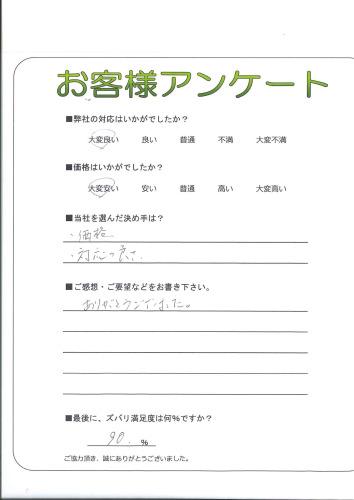 お客様アンケート
■弊社の対応はいかがでしたか？
大変良い 良い 普通 不満 大変不満
■価格はいかがでしたか？
大変安い 安い 普通 高い 大変高い
■当社を選んだ決め手は？
・価格
・対応の良さ
■ご感想・ご要望などをお書き下さい。
ありがとうございました。
■最後に、ズバリ満足度は何％ですか？
90. ％
ご協力頂き、誠にありがとうございました。